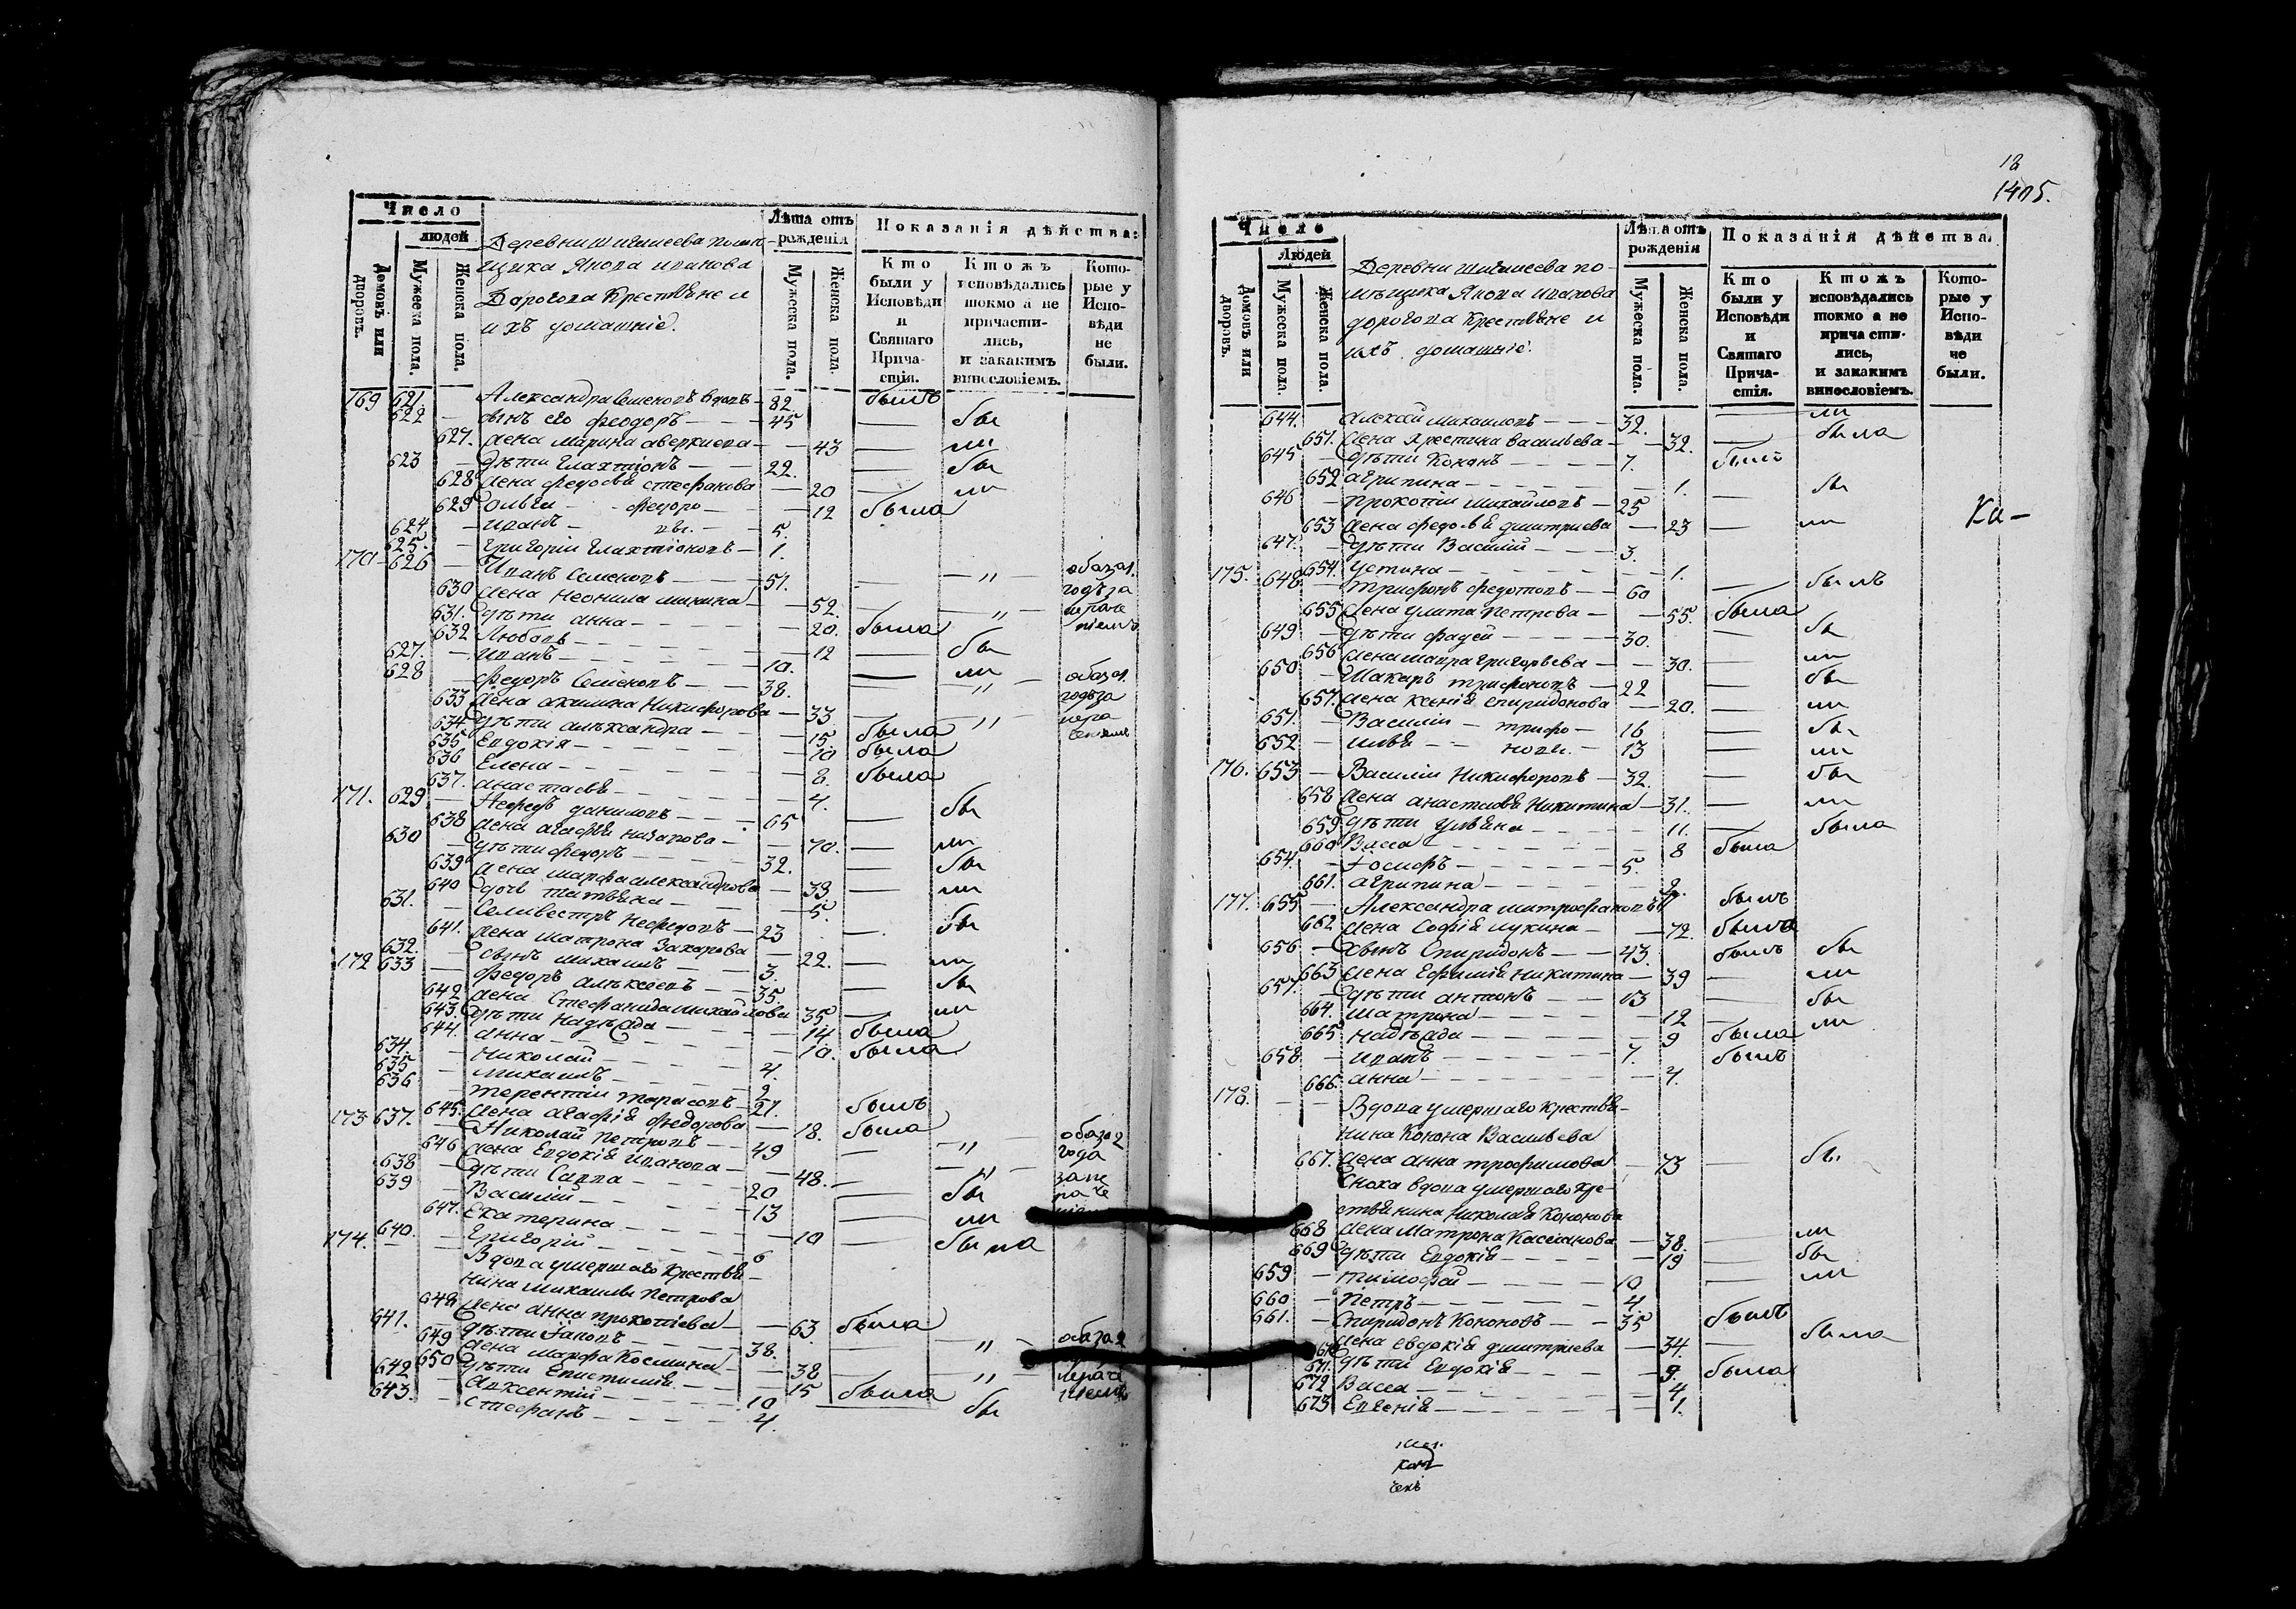 Число
людей
Домовъ или дворовъ.
Мужеска пола.
Женска пола.
Деревни Шишлеева помѣ-
щика Якова Иванова
Дорогова Крестьяне и
ихъ домашніе.
Лѣта отъ рожденія
Мужеска пола.
Женска пола.
Показанія дѣйства:
Кто были у Исповѣди и Святаго Причастія.
Ктожъ исповѣдались токмо а не причастились, и закакимъ винословіемъ.
Которые у Исповѣди не были.
169 621. Александра Семеновъ вдовъ — 82 былъ
622 — сынъ его феодоръ — 45 — бы
627. Жена Марина аверкиева — 43 — ли
623 — дѣти Галахтіонъ — 22. — бы
628 Жена федосья стефанова — 20 — ли
629 Ольга - федоро — 12 была
624 — Иванъ - вы. — 5.
625. — Григорій Галахтіоновъ — 1.
170 626 — Иванъ Семеновъ — 51. — „ — обаза 1.
630 Жена Неонила Минина — 52. — „ годъ за
631. дѣти анна — 20. была
632 Любовь — 12 — бы
627. — Иванъ — 10. — ли
628 — федоръ Семеновъ — 38. — „ — обаза 1.
633 Жена акилина Никифорова — 33 — „ годъ за
634 дѣти алѣксандра — 15 была
635 Евдокія — 10 была
636 Елена — 8. была
637. анастасья — 4.
171. 629 — Нефедъ даниловъ — 65 — бы
638 Жена агафья назарова — 70. — ли
630 — дѣти федоръ — 32. — бы
639 Жена марфа александрова — 33 — ли
640 дочь татьяна — 5.
631. — Селивестръ Нефедовъ — 23 — бы
641. Жена матрона Захарова — 22. — ли
632. — сынъ михаилъ — 3.
172 633 — федоръ алѣксеевъ — 35. — бы
642 Жена Стефанида михайлова 35 — ли
643. дѣти Надѣжда — 14 была
644. анна — 10. была
634 — Николай — 4.
635 — михаилъ — 2
636 — терентій тарасовъ — 21. былъ
645. Жена агафія федорова — 18. была
173 637. — Николай петровъ — 49 — „ — обаза 2
646 Жена Евдокія Иванова — 48. — „ года
638 — дѣти Савва — 20 — бы
639 — Василій — 13 — ли
647. Екатерина — 10 — была
640. — Григорій — 6
174. — — Вдова умершаго крестья-
нина михаила Петрова
648 Жена анна прокопіева — 63 была
641. — дѣти Іаковъ — 38. — „ — обаза 2
649 Жена марфа Космина — 38 — „
650 дѣти Епистимія — 15 была
642 — Авксентій — 10 — бы
643. — Стефанъ — 4.
18
1405.
Число
Людей
Домовъ или дворовъ.
Мужеска пола.
Женска пола.
Деревни шишлеева по-
мѣщика Якова Иванова
дорогова Крестьяне и
ихъ домашніе.
Лѣта отъ рожденія
Мужеска пола.
Женска пола.
Показанія дѣйства.
Кто были у Исповѣди и Святаго Причастія.
Ктожъ исповѣдались токмо а не причастились, и закакимъ винословіемъ.
Которые у Исповѣди не были.
644. алексѣй михаиловъ — 32. — ли
651. Жена христина васильева — 32. — была
645 — дѣти Кононъ — 7. былъ
652 агрипина — 1.
646 — прокопій михайловъ — 25 — бы
653 Жена федосья дмитриева — 23 — ли
Ка-
647. — дѣти Василій — 3.
654. Устина — 1.
175. 648 — Трифонъ федотовъ — 60 — былъ
655 Жена улита петрова — 55. была
649 — дѣти фадей — 30. — бы
656 Жена мавра григорьева — 30. — ли
650 — Макаръ трифоновъ — 22 — бы
657. Жена ксенія спиридонова — 20. — ли
651. — Василій - трифо — 16 — бы
652 — илья - новы. — 13 — ли
176. 653 — Василій Никифоровъ — 32. — бы
658 Жена анастасья Никитина — 31. — ли
659 дѣти ульяна — 11. — была
660 Васса — 8 была
654. — Іосифъ — 5.
661. агрипина — 2.
177. 655 — Александра митрофановъ былъ
662 Жена Софія лукина — 72. была
656 — сынъ Спиридонъ — 43. былъ бы
663 Жена Ефимія никитина — 39 — ли
657. — дѣти антонъ — 13 — бы
664. матрона — 12 — ли
665 надѣжда — 9 была
658 — Иванъ — 7. былъ
666. анна — 4.
178. — — Вдова умершаго крестья-
нина Конона Васильева
667. Жена анна трофимова — 73 — бы
Сноха вдова умершаго кре-
стьянина николая Кононова
668 Жена Матрона Кассіанова — 38. — ли
669 дѣти Евдокія — 19 — бы
659 — тимофей — 10 — ли
660 — Петръ — 4.
661. — Спиридонъ Кононовъ — 35 былъ
670 Жена евдокія дмитриева — 34. — была
671. дѣти Евдокія — 9. была
672 Васса — 4
673 Евгенія — 1.